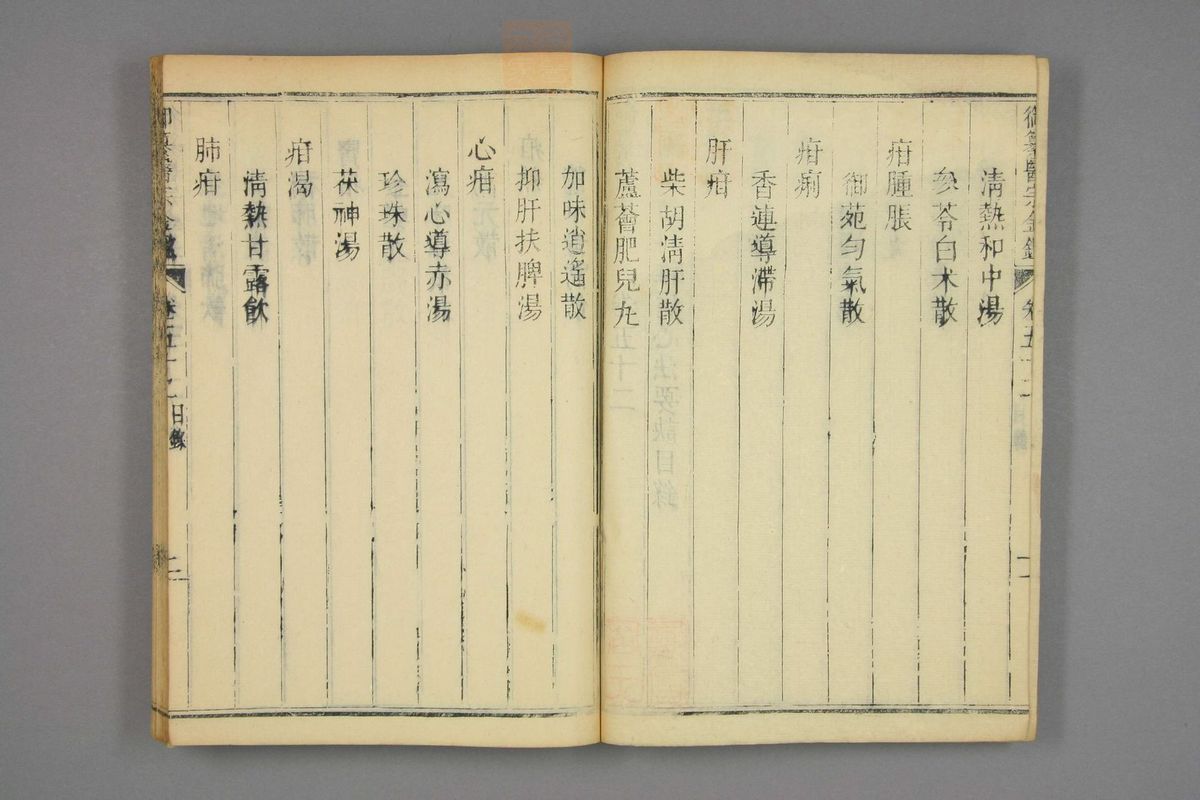 御纂醫宗金鑑 卷五十二
清熱和中湯
參苓白术散
疳腫脹
御苑勻氣散
疳痢
香連導滯湯
肝疳
柴胡清肝散
蘆薈肥兒九
加味逍遙散
抑肝扶脾湯
心疳
瀉心導赤湯
珍珠散
茯神湯
疳渴
清熱甘露飲
肺疳
御纂醫宗金鑑 卷五十二 目錄 二